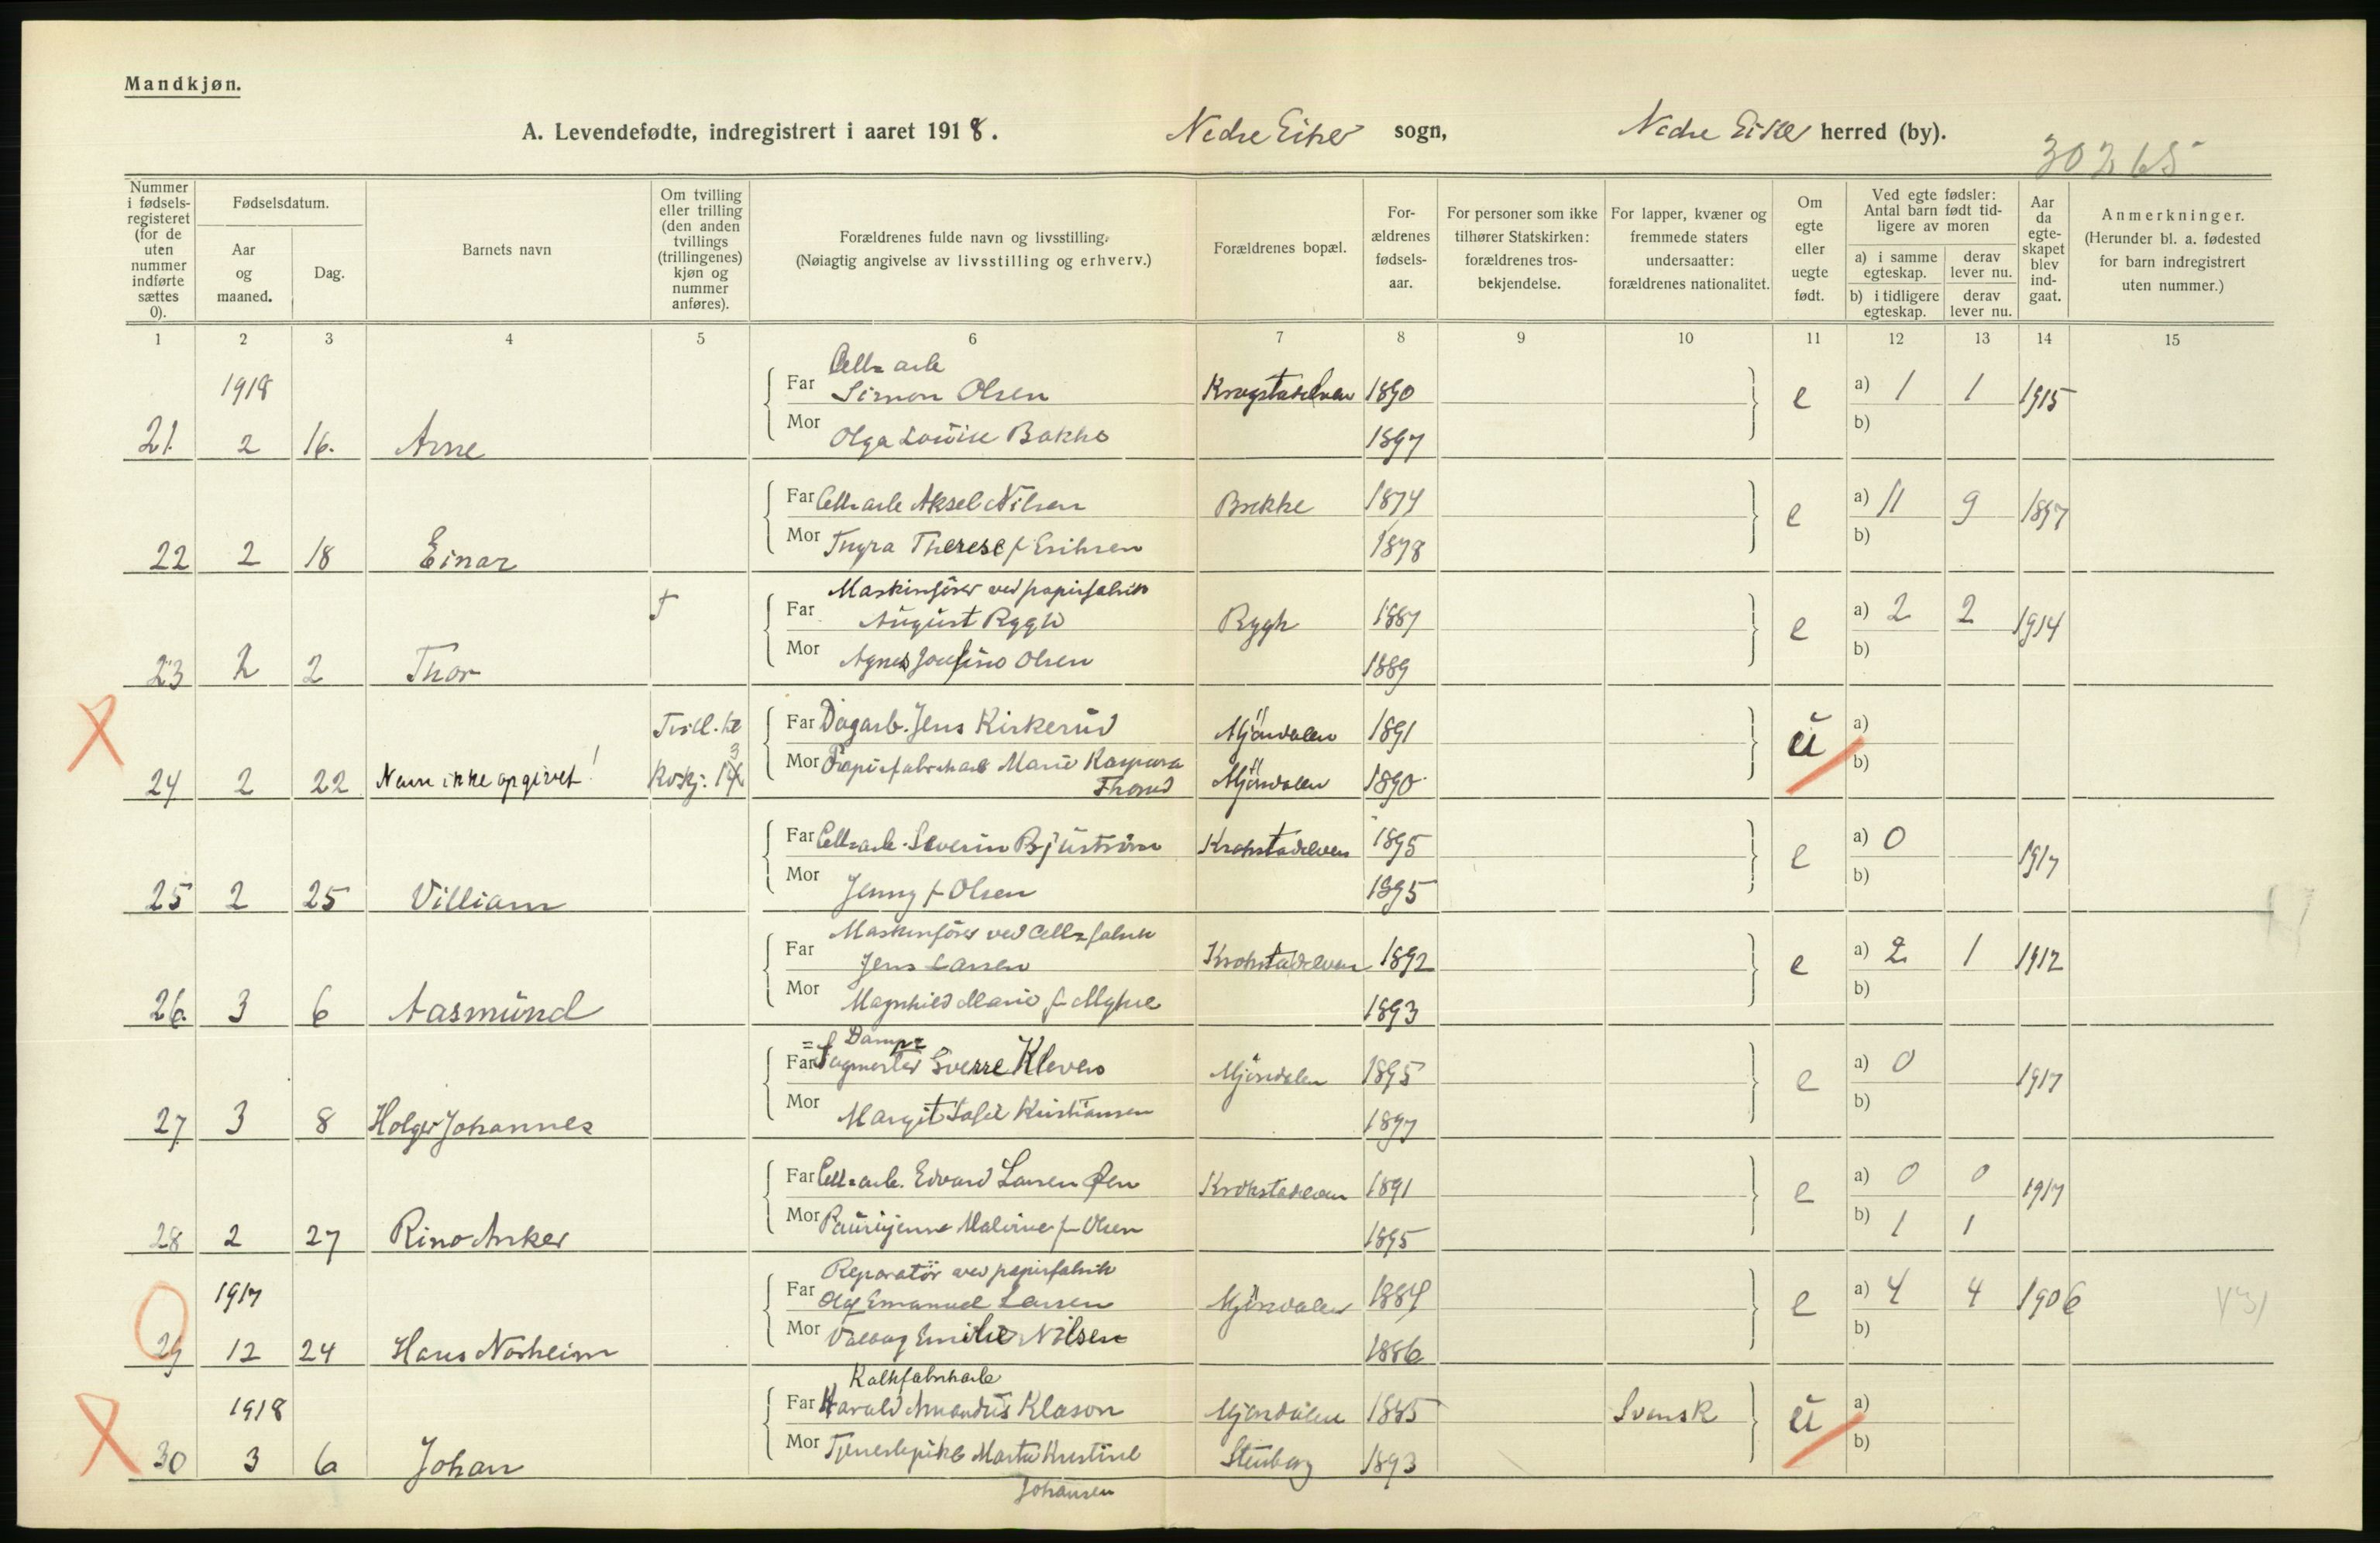 Mandkjøn.
A. Levendefødte, indregistrert i aaret 1918. Nedre Eiker sogn, Nedre Eiker herred (by).
30265
Nummer i fødselsregisteret (for de uten nummer indførte sættes 0).
Fødselsdatum.
Aar og maaned.
Dag.
Barnets navn
Om tvilling eller trilling (den anden tvillings (trillingenes) kjøn og nummer anføres).
Forældrenes fulde navn og livsstilling.
(Nøiagtig angivelse av livsstilling og erhverv.)
Forældrenes bopæl.
Forældrenes fødselsaar.
For personer som ikke tilhører Statskirken: forældrenes trosbekjendelse.
For lapper, kvæner og fremmede staters undersaatter: forældrenes nationalitet.
Om egte eller uegte født.
Ved egte fødsler: Antal barn født tidligere av moren
a) i samme egteskap. derav lever nu.
b) i tidligere egteskap. derav lever nu.
Aar da egteskapet blev indgaat.
Anmerkninger.
(Herunder bl. a. fødested for barn indregistrert uten nummer.)
1 2 3 4 5 6 7 8 9 10 11 12 13 14 15
Cell= arb
1918 Far Simon Olsen Krogstadelven 1890 e a) 1 1 1915
21. 2 16. Arne Mor Olga Louise Bakke 1897 b)
Far Cell=arb Aksel Nilsen Brekke 1874 e a) 11 9 1897
22 2 18 Einar Mor Thyra Therese f Eriksen 1878 b)
Maskinfører ved papirfabrik
Far August Rygh Rygh 1887 e a) 2 2 1914
23 2 2 Thor Mor Agnes Josefine Olsen 1889 b)
Tvill. Far Dagarb. Jens Kirkerud Mjöndalen 1891 u a)
24 2 22 Navn ikke opgivet! Kvkj. Mor Papirfabrikarb Marie Kaspara Mjöndalen 1890 b)
Far Cell=arb. Severin Krokstadelven 1895 e a) 0 1917
25 2 25 Villiam Mor Jenny f Olsen 1895 b)
Maskinfører ved Cell=fabrik
Far Jens Larsen Krokstadelven 1892 e a) 2 1 1912
26. 3 6 Aasmund Mor Magnhild Marie f 1893 b)
= Damp=
Far Sagmester Sverre Kleven Mjöndalen 1895 e a) 0 1917
27. 3 8 Holger Johannes Mor Margit Sofie Kristiansen 1897 b)
Far Cell=arb. Edvard Larsen Øen Krokstadelven 1891 e a) 0 0 1917
28 2 27 Rino Anker Mor Malvine f Olsen 1895 b) 1 1
Reparatör ved papirfabrik
1917 Far Olaf Emanuel Larsen Mjöndalen 1884 e a) 4 4 1906
29 12 24 Hans Norheim Mor Valborg Emilie Nilsen 1886 b)
Kalkfabrikarb
1918 Far Harald Amandus Klason Mjöndalen 1885 Svensk u a)
30 3 6 Johan Mor Tjenestepike Marta Kristine Stenberg 1893 b)
Johansen